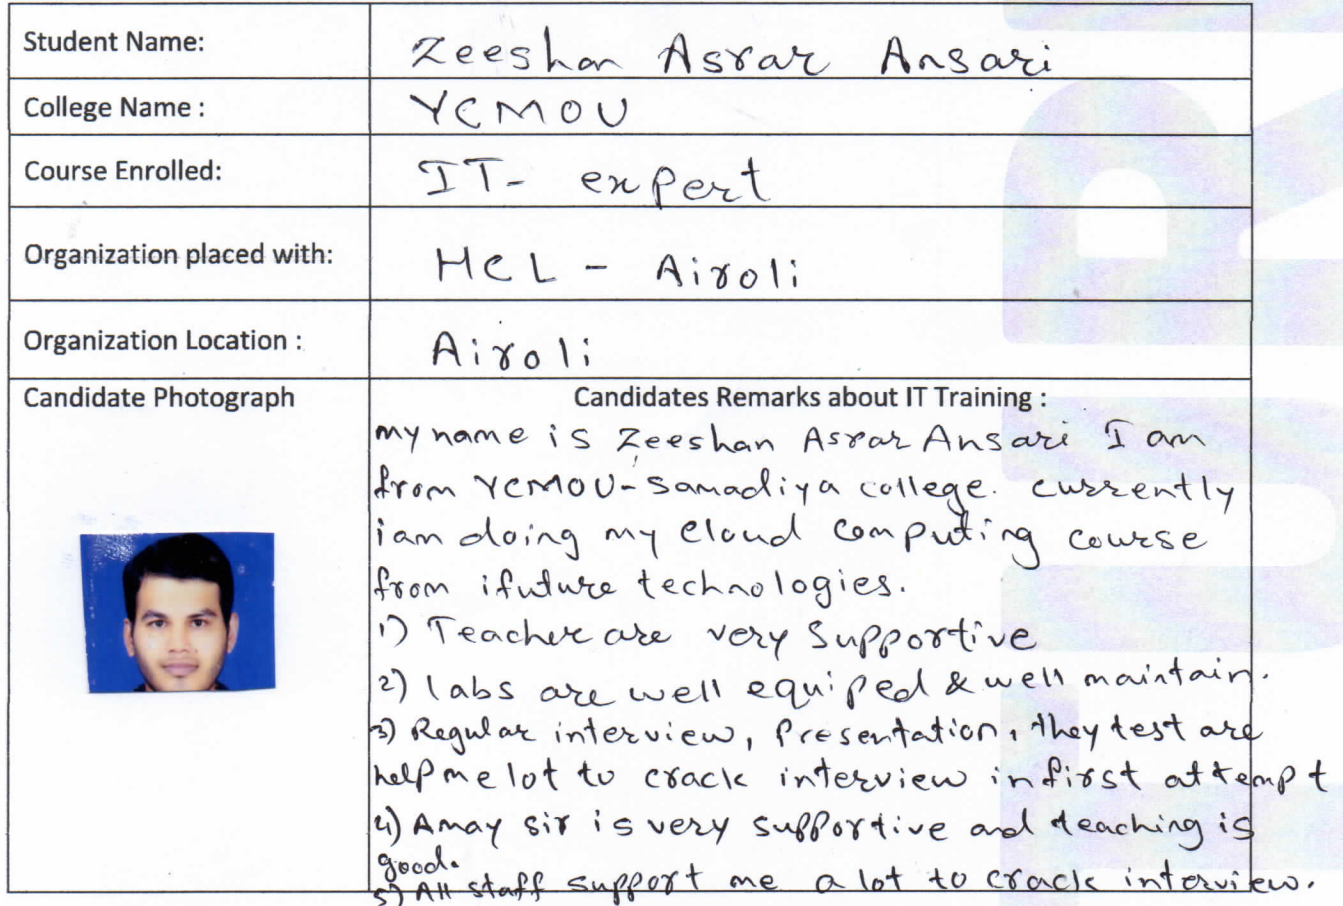 Student Name: Zeeshan Asrar Ansari
College Name : YCMOU
Course Enrolled: IT- expert
Organization placed with: HCL - Airoli
Organization Location : Airoli
Candidate Photograph
Candidates Remarks about IT Training :
my name is Zeeshan Asrar Ansari I am
from YCMOU-Samadiya college. currently
i am doing my Cloud Computing course
from ifuture technologies.
1) Teacher are very Supportive
2) labs are well equiped & well maintain.
3) Regular interview, Presentation, they test are
help me lot to crack interview in first attempt
4) Amay sir is very supportive and teaching is
good.
5) All staff support me a lot to crack interview.